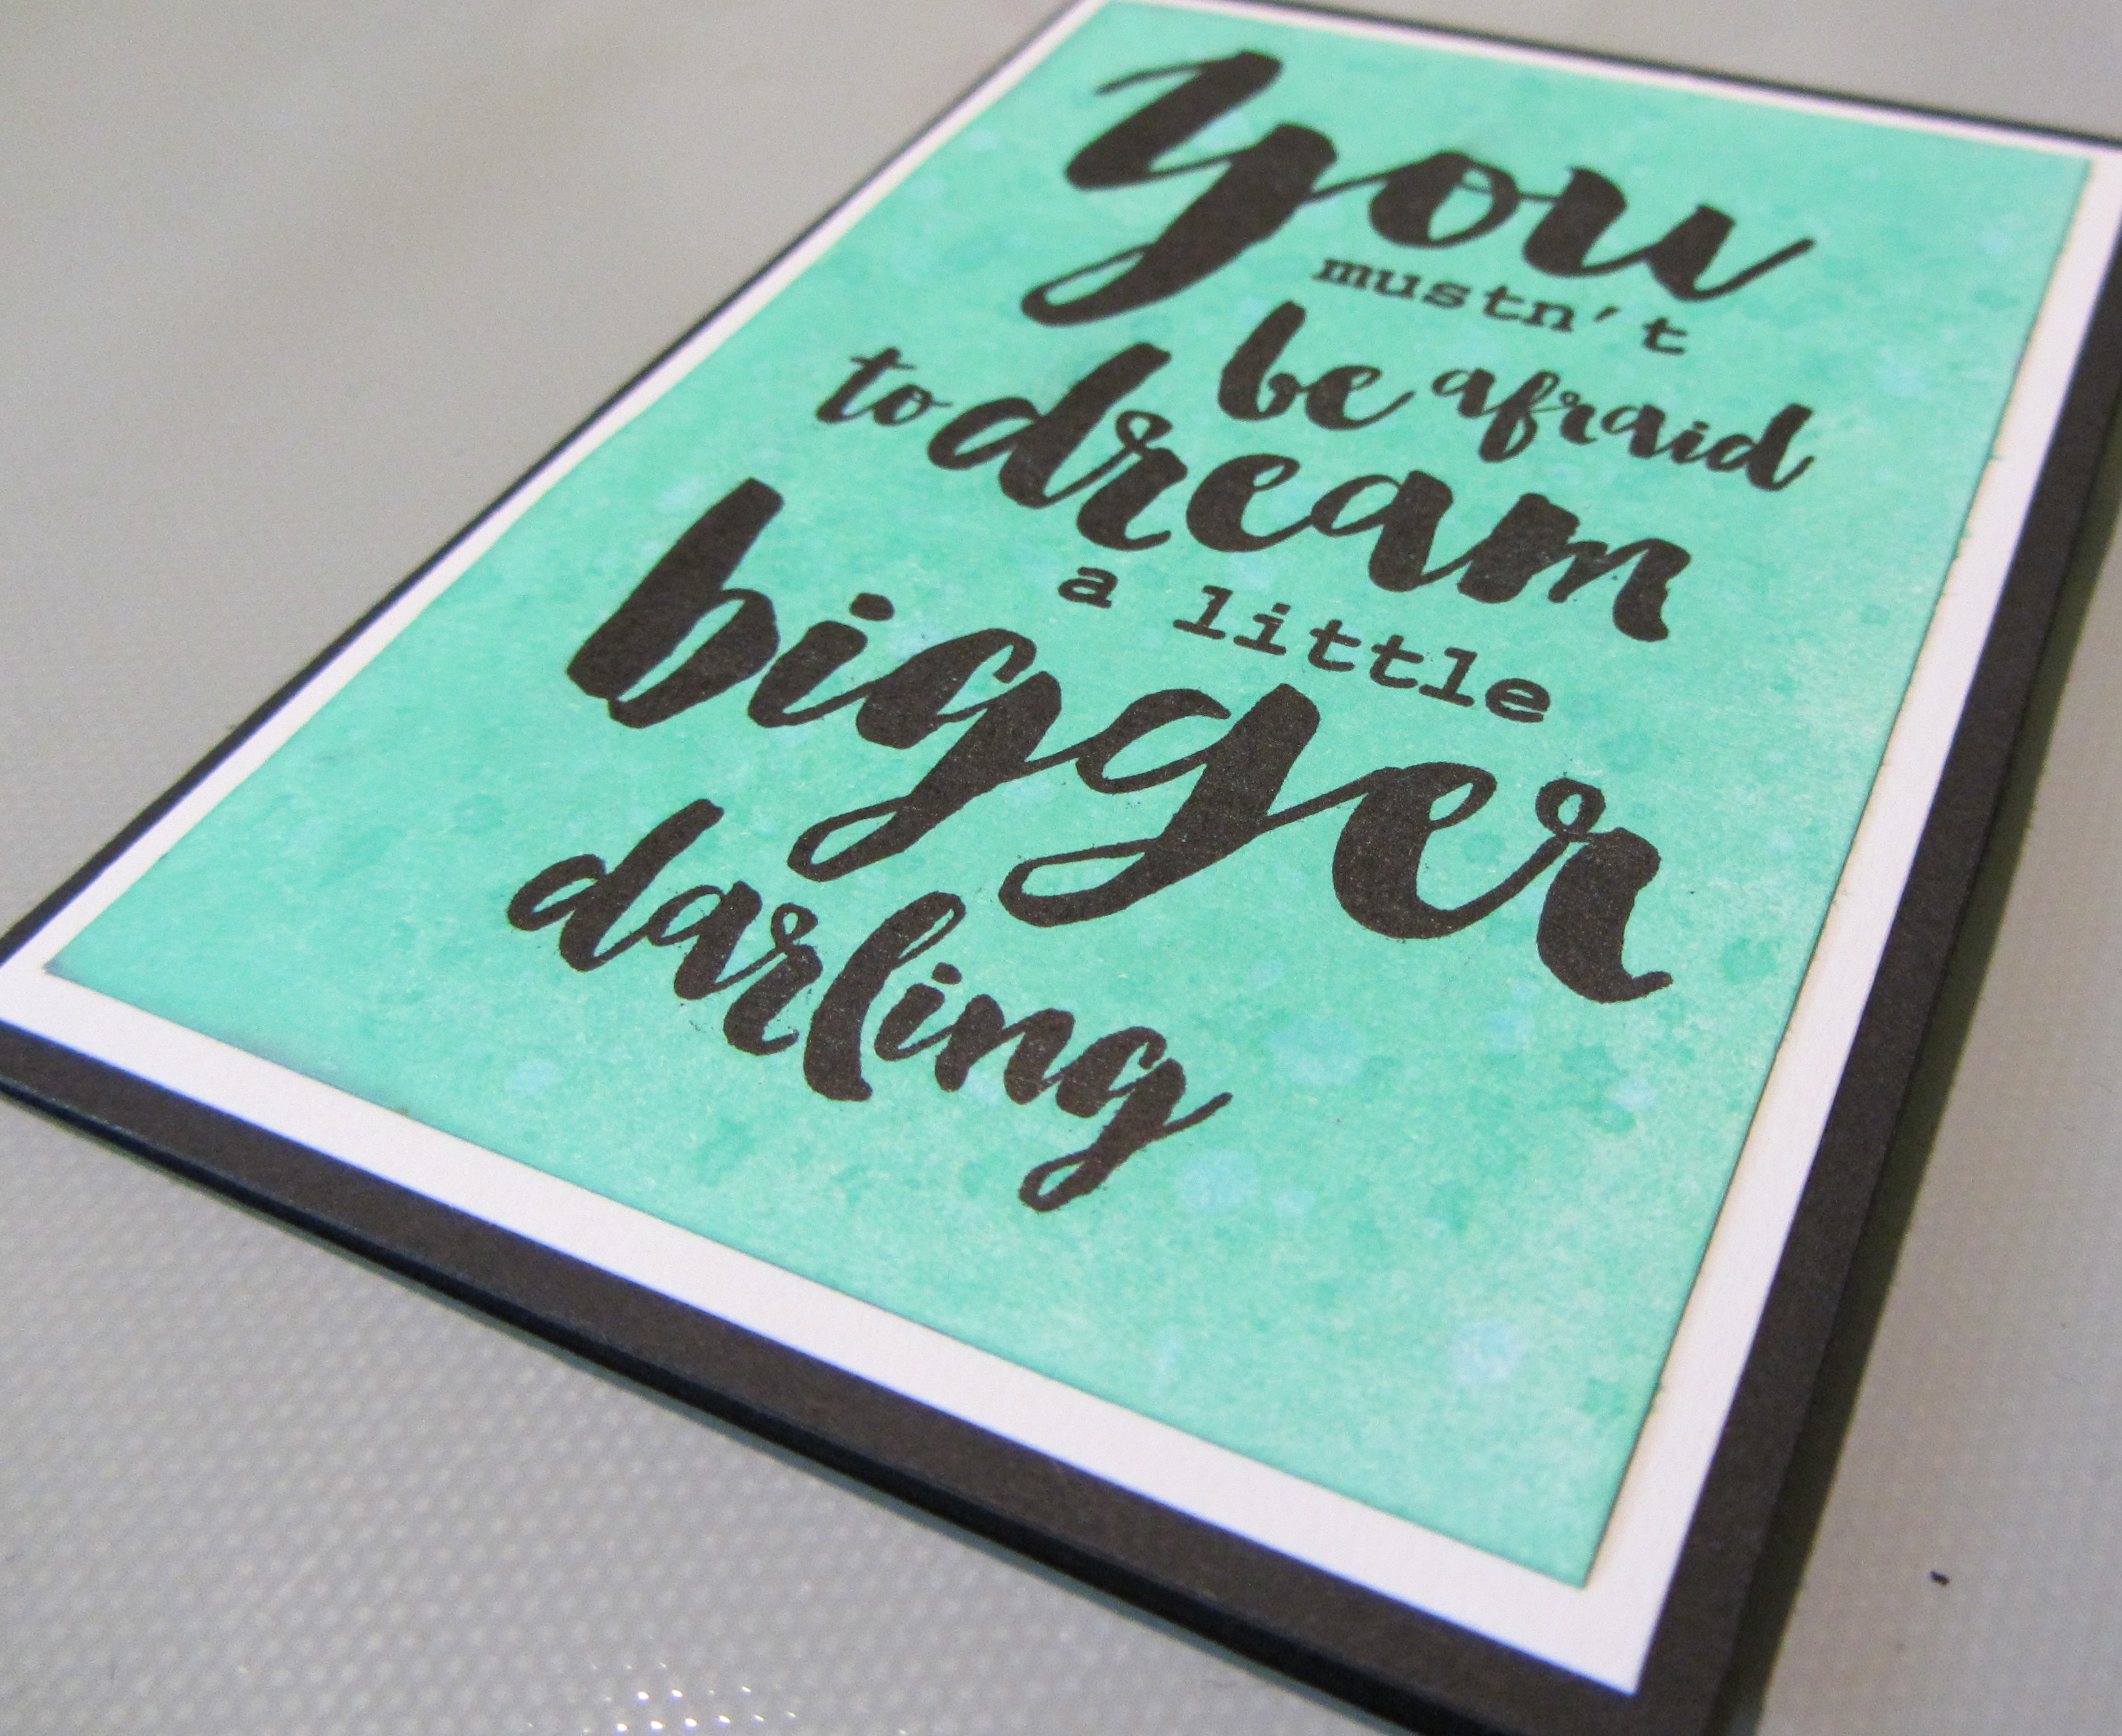 you
mustn't
be afraid
to dream
a little
bigger
darling